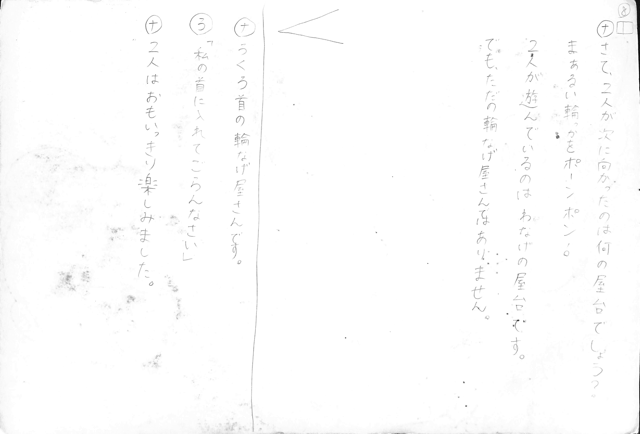 ⑧
ナ さて、2人が次に向かったのは何の屋台でしょう?
まぁるい輪っかをポーンポン!。
2人が遊んでいるのはわなげの屋台です。
でも、ただの輪なげ屋さんではありません。
ナ ろくろ首の輪なげ屋さんです。
ろ 「私の首に入れてごらんなさい」
ナ 2人はおもいっきり楽しみました。